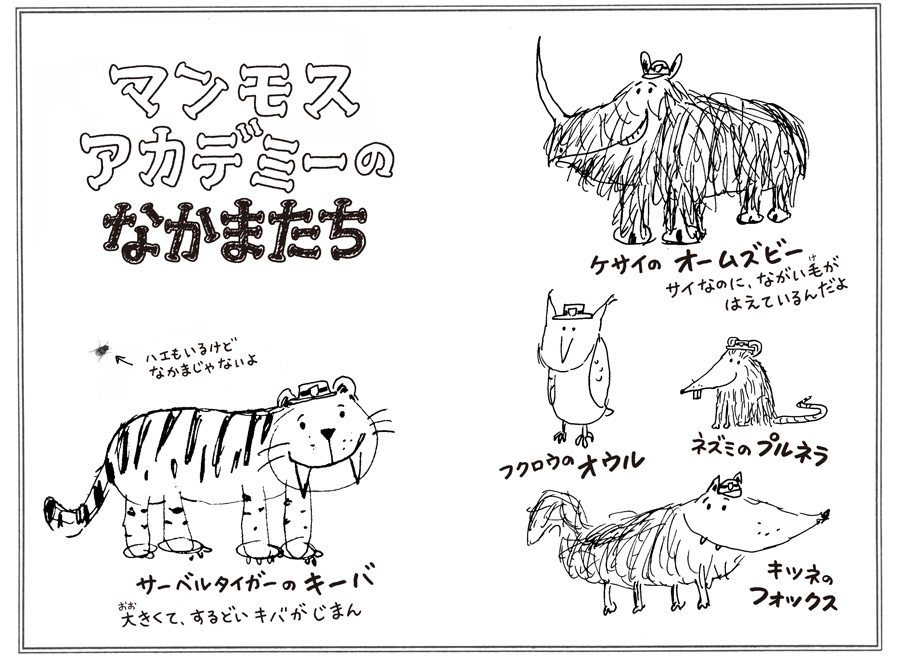 マンモス
アカデミーの
なかまたち
ケサイの オームズビー
サイなのに、ながい毛が
け
はえているんだよ
ハエもいるけど
なかまじゃないよ
フクロウの オウル
ネズミの プルネラ
サーベルタイガーの キーバ
おお
大きくて、するどい キバが じまん
キツネの
フォックス